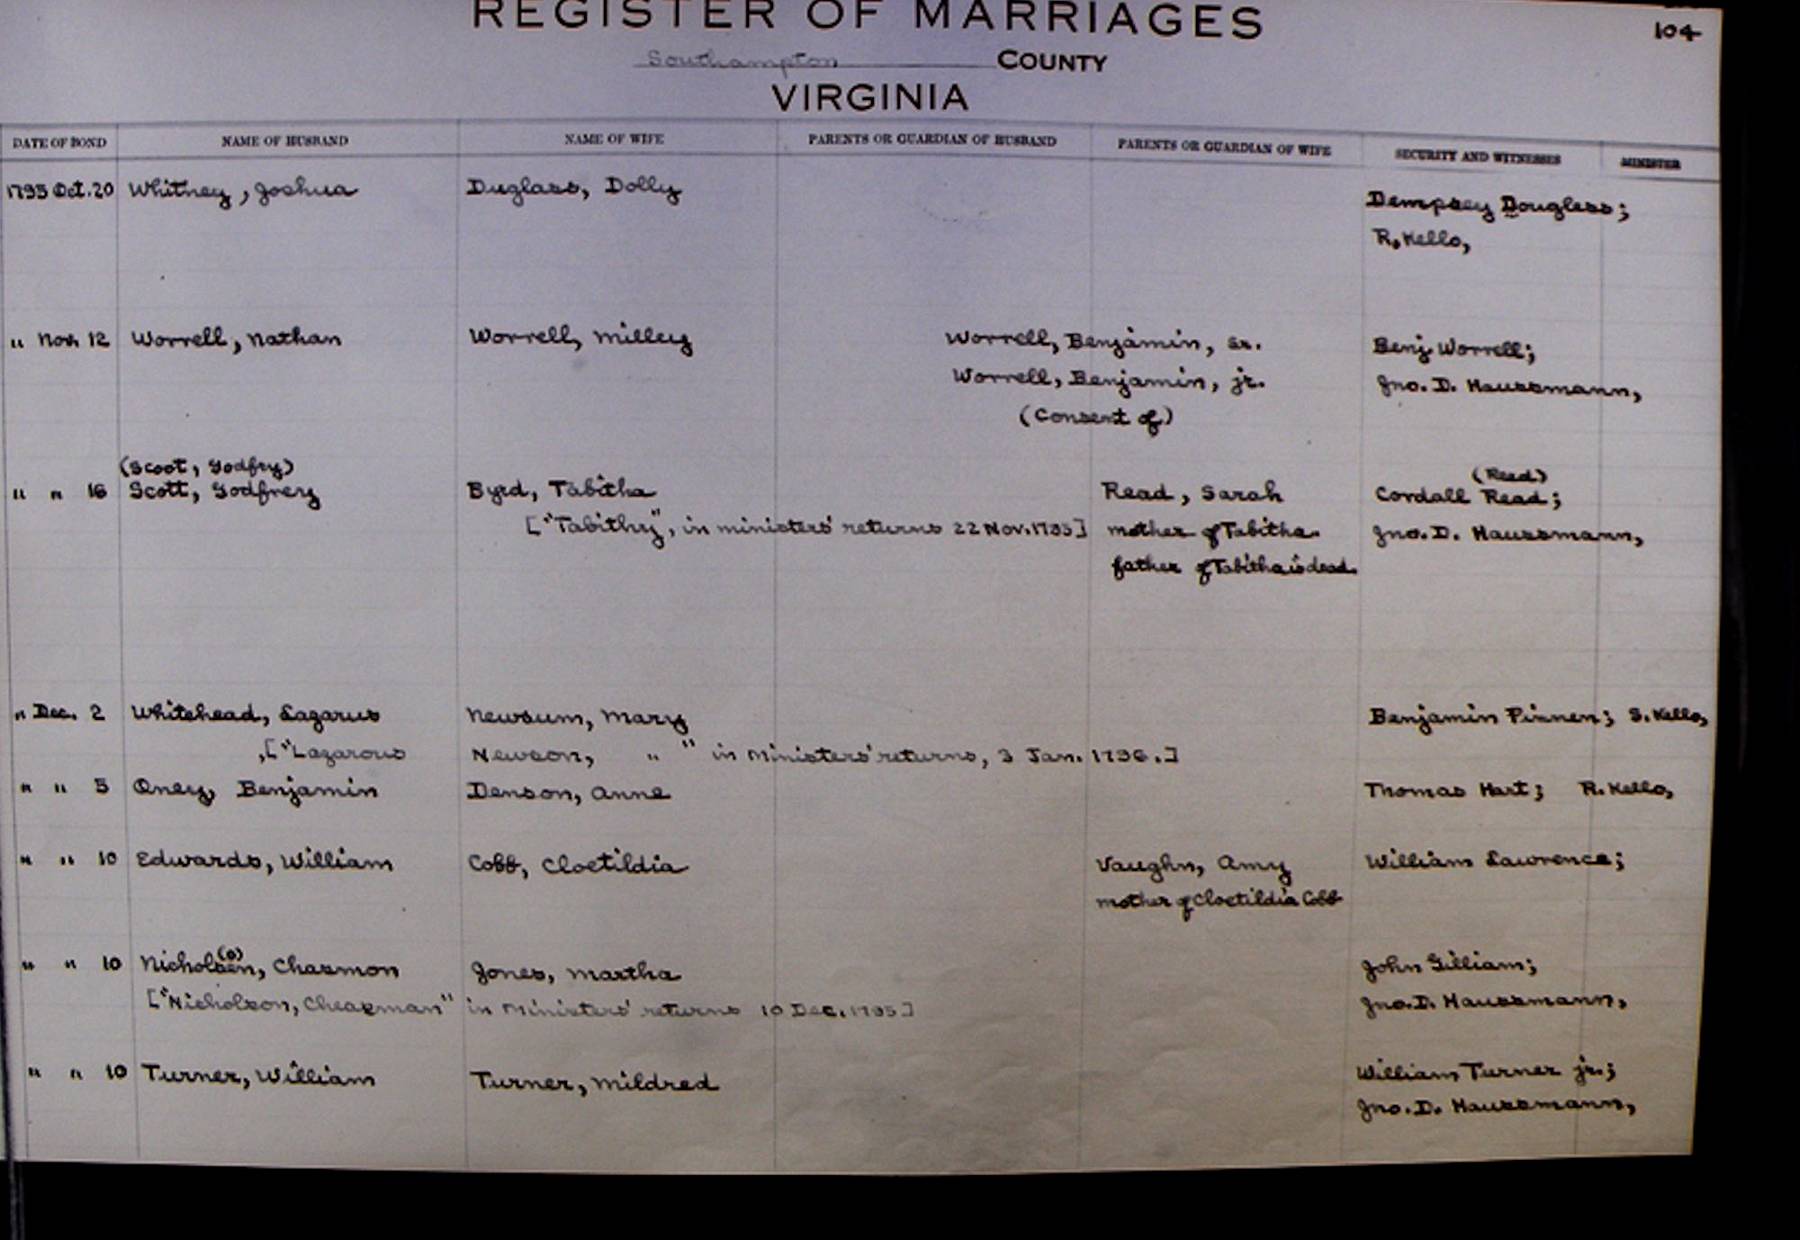 REGISTER OF MARRIAGES
104
Southampton COUNTY
VIRGINIA
DATE OF BOND NAME OF HUSBAND NAME OF WIFE PARENTS OR GUARDIAN OF HUSBAND PARENTS OR GUARDIAN OF WIFE SECURITY AND WITNESSES MINISTER
1795 Oct. 20 Whitney, Joshua Duglass, Dolly Dempsey Douglass;
R. Kello,
" Nov. 12 Worrell, Nathan Worrell, Milley Worrell, Benjamin, Sr. Benj Worrell;
Worrell, Benjamin, jr. Jno. D. Haussmann,
(Consent of)
(Scoot, Godfry) (Read)
" " 16 Scott, Godfrey Byrd, Tabitha Read, Sarah Cordall Read;
["Tabithy", in ministers' returns 22 Nov. 1795] mother of Tabitha Jno. D. Haussmann,
father of Tabitha is dead.
" Dec. 2 Whitehead, Lazarus Newsum, Mary Benjamin Pinnen; S. Kello,
,["Lazarous Newson, " " in Ministers' returns, 3 Jan. 1796.]
" " 5 Oney, Benjamin Denson, Anne Thomas Hart; R. Kello,
" " 10 Edwards, William Cobb, Cloetildia Vaughn, Amy William Lawrence;
mother of Cloetildia Cobb
" " 10 Nicholsen, (o) Chasmon Jones, Martha John Gilliam;
["Nicholson, Cheasman" in Ministers' returns 10 Dec. 1795] Jno. D. Haussmann,
" " 10 Turner, William Turner, Mildred William Turner jr.;
Jno. D. Haussmann,